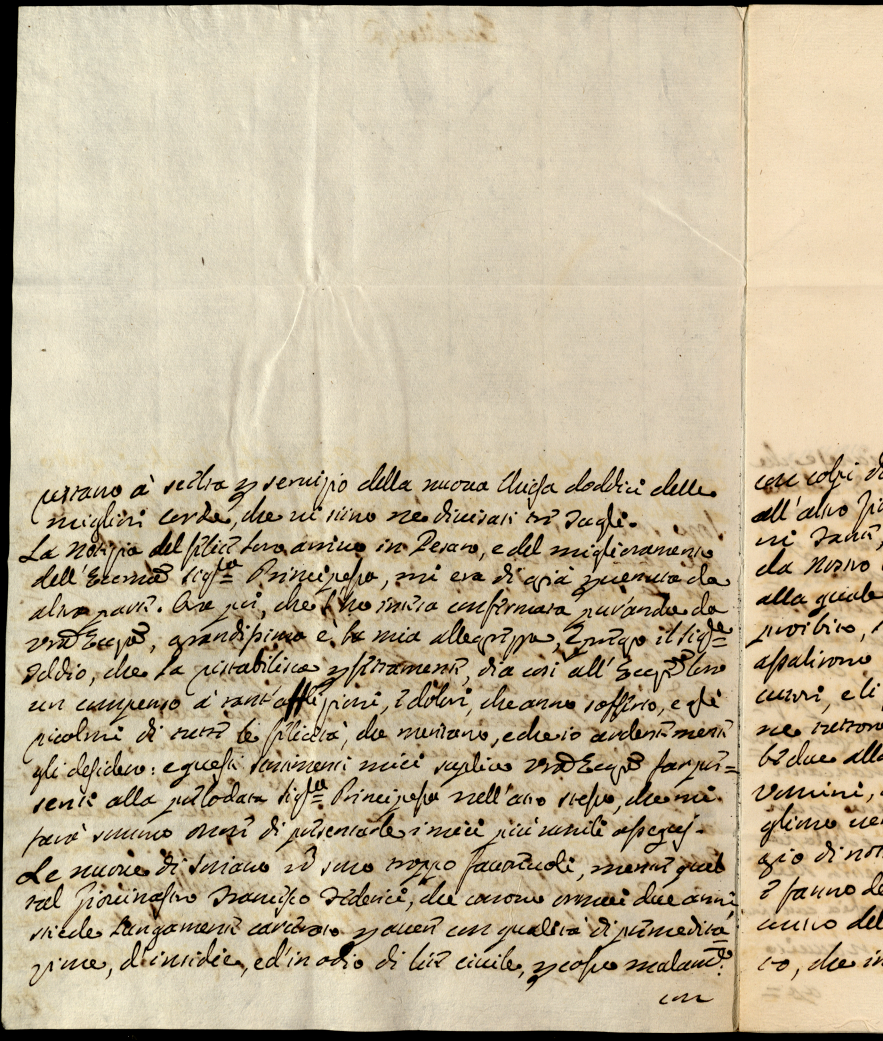 vettano à scelta p servizio della nuova Chiesa doddici delle
migliori corde, che vi sono ne diversi
La notizia del felice loro arrivo in Pesaro, e del miglioramento
dell'Eccma Sigra Principessa, mi era di già pervenuta da
altra parte. Ora poi, che l'ho intesa confirmata pur'anche da
Vra Ecca, grandissima è la mia allegrezza, e prego il Sigre
Iddio, che la ristabilisca perfettamente, dia così all'Ecca loro
un compenso à tant'afflizioni, e dolori, che anno sofferto, e gli
ricolmi di tutte le felicità, che meritano, e che io ardentemente
gli desidero: e questi sentimenti miei suplico Vra Ecca far pre=
senti alla prelodata Sigra Principessa nell'atto stesso, che mi
farà sommo onore di presentarle i miei più umili ossequj.
Le nuove di Soriano nō sono troppo favorevoli, mentre quel
tal Francesco Federici, che corrono ormai due anni
stiede lungamente carcerato p aver con qualità di premedita=
zione, d'insidie, ed in odio di lite civile, p cosse malamte:
con
con colpi di
all'altro
ni
da Notro
alla quale
proibito,
assalirono
cursori, e li
ne
due alla
Uomini,
gliono
gio di
e fanno de
del
to, che in